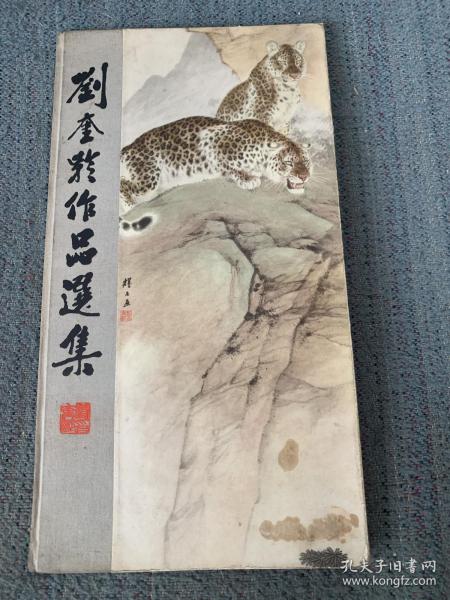 劉奎齡作品選集
耀辰畫
孔夫子旧书网
www.kongfz.com